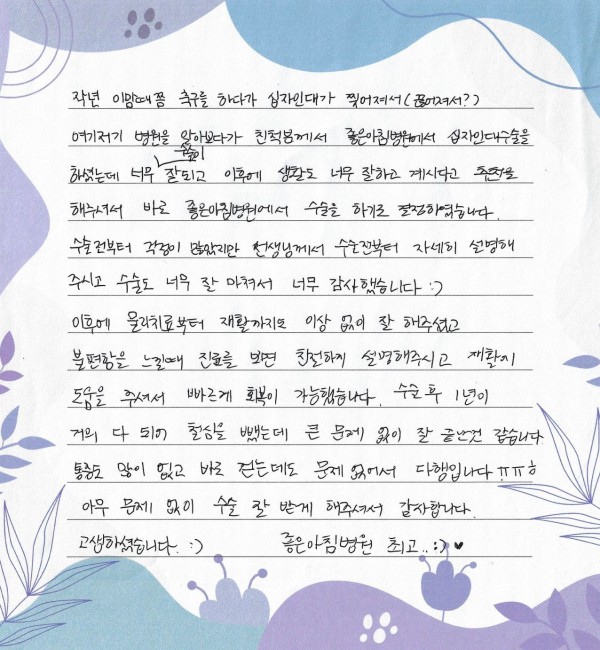 작년 이맘때쯤 축구를 하다가 십자인대가 찢어져서(끊어져서?)
여기저기 병원을 알아보다가 친척분께서 좋은아침병원에서 십자인대수술을
하셨는데 수술이 너무 잘되고 이후에 생활도 너무 잘하고 계시다고 추천을
해주셔서 바로 좋은아침병원에서 수술을 하기로 결정하였습니다.
수술전부터 걱정이 많았지만 선생님께서 수술전부터 자세히 설명해
주시고 수술도 너무 잘 마쳐서 너무 감사했습니다 :)
이후에 물리치료부터 재활까지도 이상 없이 잘 해주셨고
불편함을 느낄때 진료를 보면 친절하게 설명해주시고 재활에
도움을 주셔서 빠르게 회복이 가능했습니다. 수술 후 1년이
거의 다 되어 철심을 뺐는데 큰 문제 없이 잘 끝난것 같습니다
통증도 많이 없고 바로 걷는데도 문제없어서 다행입니다ㅠㅠㅎ
아무 문제 없이 수술 잘 받게 해주셔서 감사합니다.
고생하셨습니다. :) 좋은아침병원 최고..:) ♥